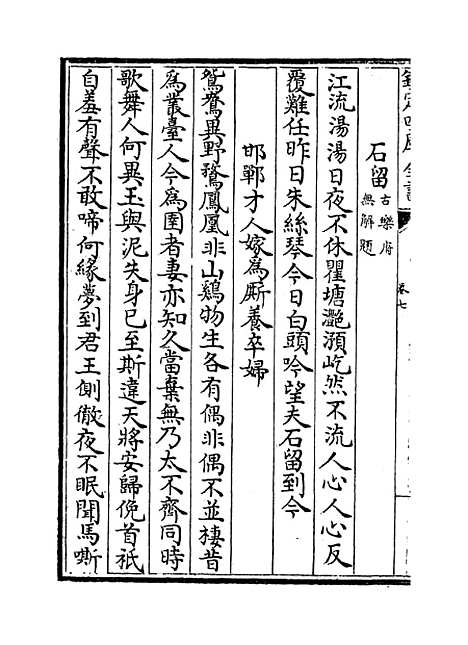 欽定四庫全書
卷七
石留古樂府無解題
江流湯湯日夜不休瞿塘灔澦屹然不流人心人心反
覆難任昨日朱絲琴今日白頭吟望夫石留到今
邯鄲才人嫁為厮養卒婦
鴛鴦異野鶩鳳凰非山鷄物生各有偶非偶不並棲昔
為叢臺人今為圉者妻亦知久當棄無乃太不齊同時
歌舞人何異玉與泥失身已至斯違天將安歸俛首祇
自羞有聲不敢啼何緣夢到君王側徹夜不眠聞馬嘶